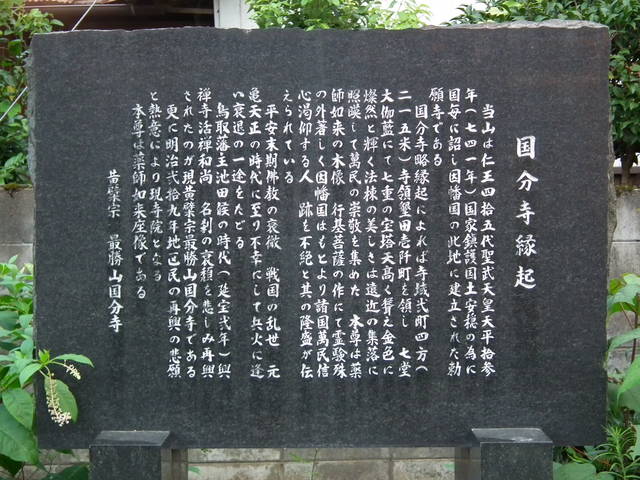 国分寺縁起
当山は仁王四拾五代聖武天皇天平拾参
年(七四一年)国家鎮護国土安穏の為に
国毎に詔し因幡国の此地に建立された勅
願寺である
国分寺略縁起によれば寺域弍町四方(
二一五米)寺領墾田壱阡町を領し 七堂
大伽藍にて七重の宝塔天高く聳え金色に
燦然と輝く法棟の美しさは遠近の集落に
照暎して萬民の崇敬を集めた 本尊は薬
師如来の木像 行基菩薩の作にて霊験殊
の外著しく因幡国はもとより諸国萬民信
心渇仰する人 跡を不絶と其の隆盛が伝
えられている
平安末期佛教の衰微 戦国の乱世 元
亀天正の時代に至り不幸にして兵火に逢
い衰退の一途をたどる
鳥取藩主池田候の時代(延宝弍年)興
禅寺活禅和尚 名刹の衰頽を悲しみ再興
されたのが現黄檗宗最勝山国分寺である
更に明治弍拾九年地区民の再興の悲願
と熱意により現寺院となる
本尊は薬師如来座像である
黄檗宗 最勝山国分寺